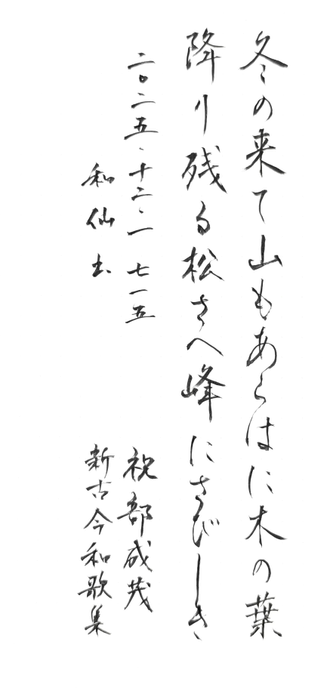 冬の来て山もあらはに木の葉
降り残る松さへ峰にさびしき
二〇二五、十二、一 七一五
和仙书
祝部成茂
新古今和歌集